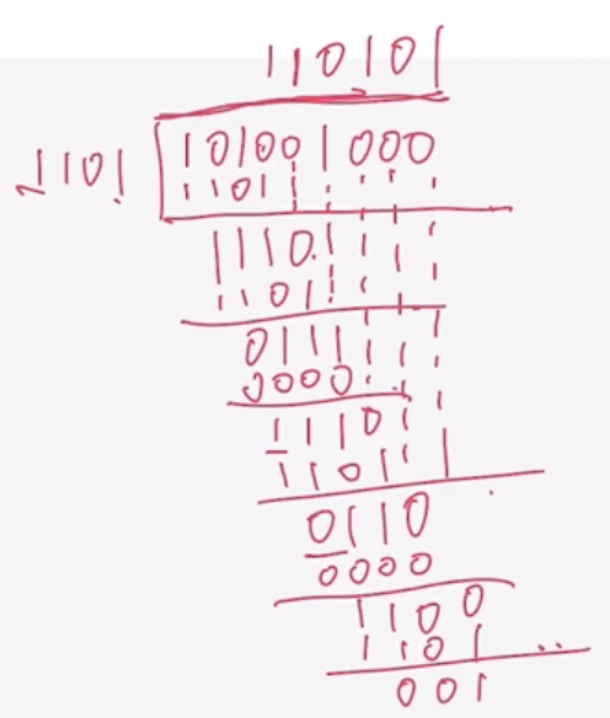 110101
1101 101001000
1101
1110
1101
0111
0000
1110
1101
0110
0000
1100
1101
001